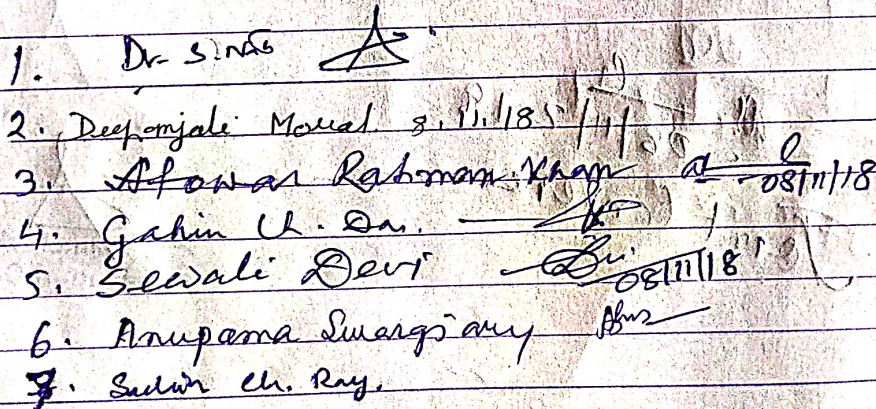 1. Dr. S. Nath
2. Deepanjali Morral 8.11.18
3. Atowar Rahman Khan 08/11/18
4. Gahin Ch. Das.
5. Sewali Devi 08/11/18
6. Anupama Swargiary
7. Sudhir Ch. Ray.